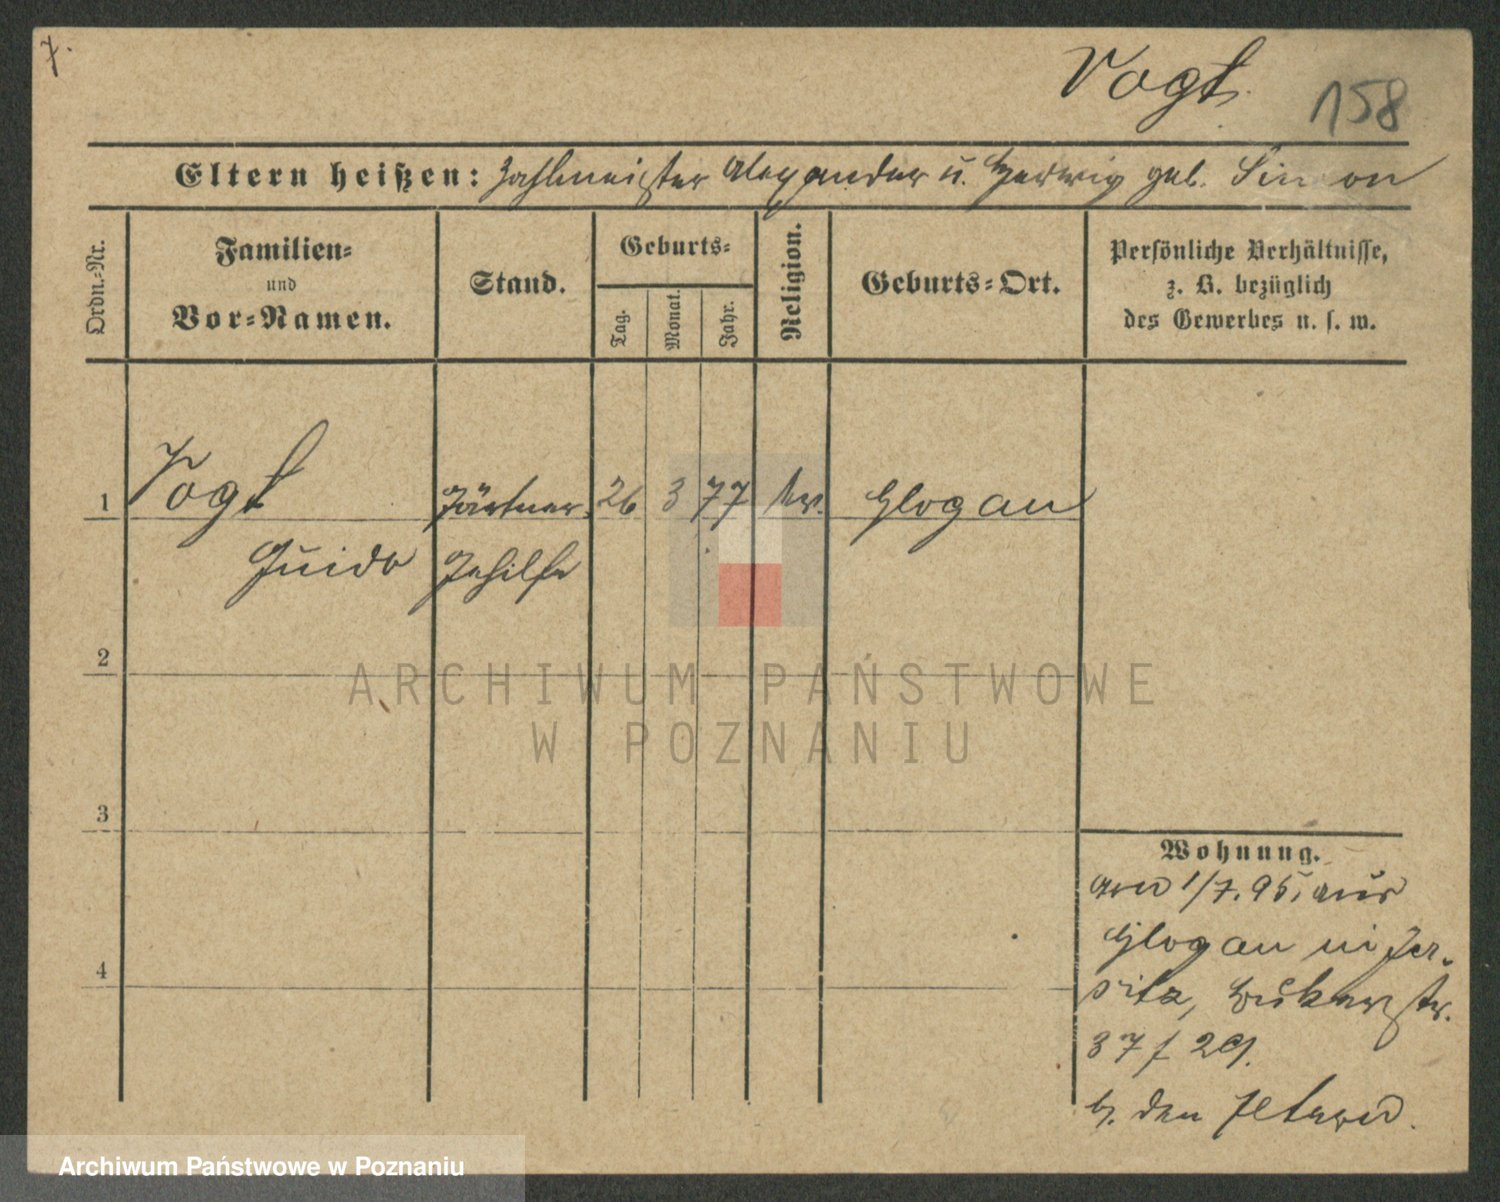 7.
Vogt.
158
Eltern heißen: Zahlmeister Alexander u. Hedwig geb. Simon
Ordn.-Nr.
Familien-
und
Vor-Namen.
Stand.
Geburts-
Tag.
Monat.
Jahr.
Religion.
Geburts-Ort.
Persönliche Verhältnisse,
z. B. bezüglich
des Gewerbes u. s. w.
1 Vogt Gärtner 26 3 77 Glogau
Guido Gehilfe
2
ARCHIWUM PAŃSTWOWE
W POZNANIU
3
4
Wohnung.
1/7. 95. aus
Glogau in Jer-
sitz, Bukerstr.
37 / 29.
b. den Eltern.
Archiwum Państwowe w Poznaniu